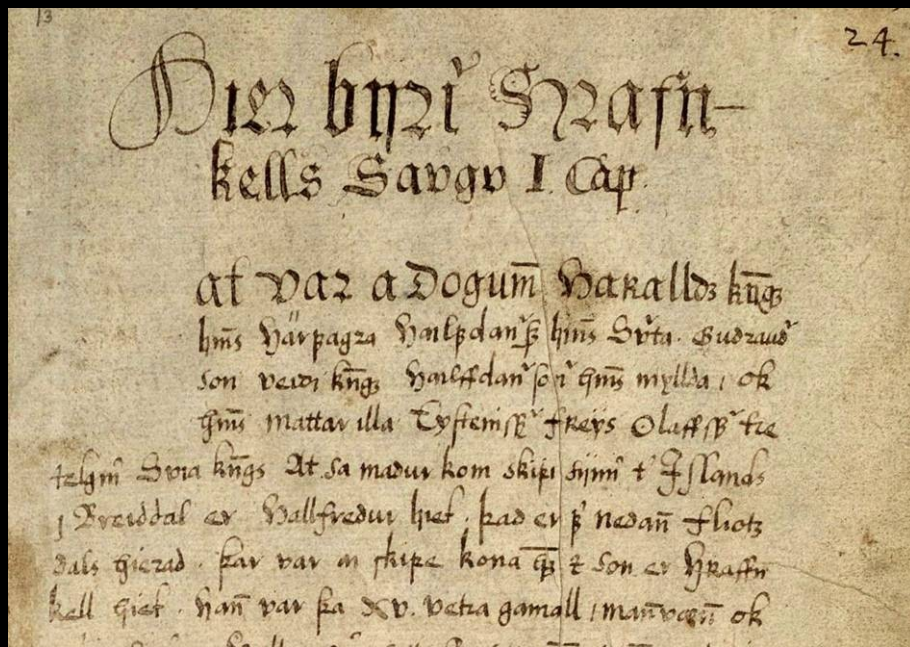 13
24.
Hier byri Hrafn-
kells Saugu I Cap.
at var a Dogum̄ Haralldz kn̄gs
hins Härfagra Hälfdanar hins Svarta Gudraud
son veidi kn̄gs Halffdanar hins myllda, ok
hins mattar illa Eysteins Freys Olaffs tre
telgiu Svia kn̄gs At sa madur kom skipi sijnu t Jslands
j Breiddal er Hallfredur hiet. þad er nedan̄ Fliotz
dals hierad. þar var a skipe kona ꝛ son er Hraffn
kell hiet. han̄ var þa XV. vetra gamall, man̄væn̄ ok